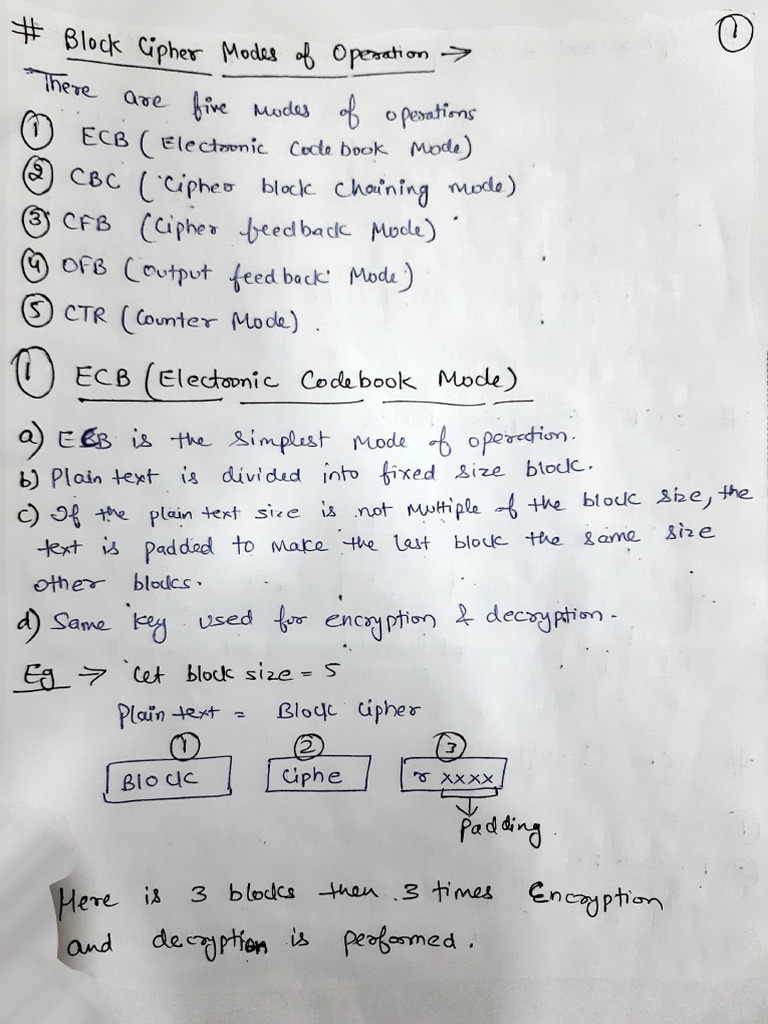 ①
# Block Cipher Modes of Operation →
There are five modes of operations
① ECB (Electronic Codebook Mode)
② CBC (Cipher block chaining mode)
③ CFB (Cipher feedback Mode)
④ OFB (Output feedback Mode)
⑤ CTR (Counter Mode).
① ECB (Electronic Codebook Mode)
a) ECB is the simplest Mode of operation.
b) Plain text is divided into fixed size block.
c) If the plain text size is not multiple of the block size, the
text is padded to make the last block the same size
other blocks.
d) Same key used for encryption & decryption.
Eg → Let block size = 5
Plain text = Block Cipher
① ② ③
Block Ciphe r xxxx
Padding.
Here is 3 blocks then 3 times Encryption
and decryption is performed.